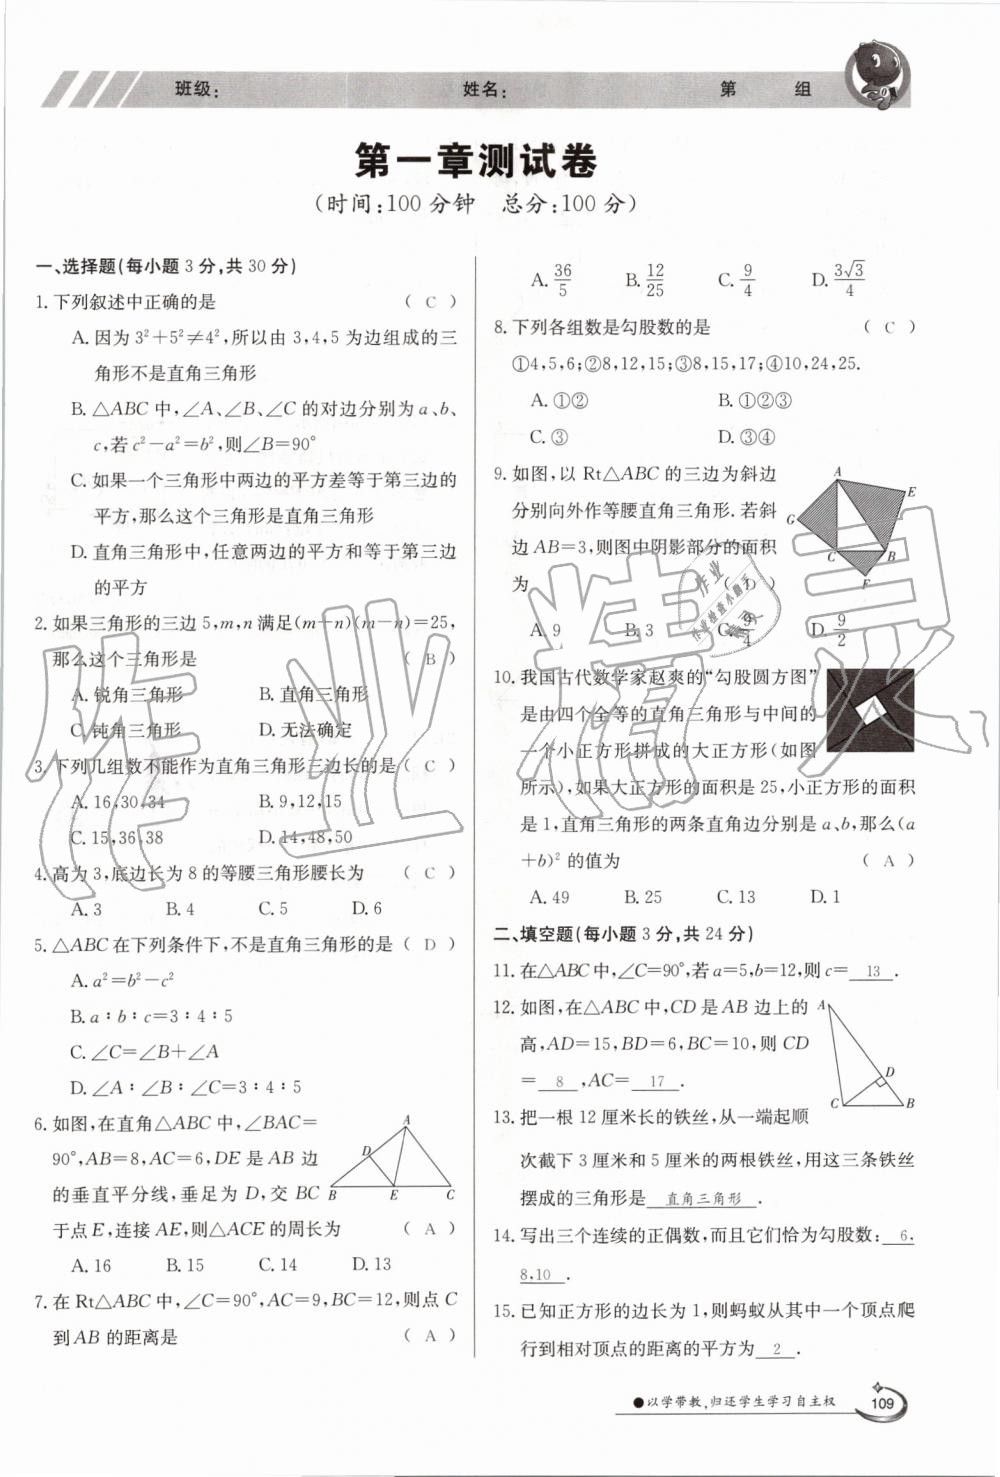 班级:
姓名:
第 组
第一章测试卷
(时间:100分钟 总分:100分)
一、选择题(每小题3分,共30分)
1.下列叙述中正确的是 ( C )
A.因为3²+5²≠4²,所以由3,4,5为边组成的三
角形不是直角三角形
B.△ABC中,∠A、∠B、∠C的对边分别为a、b、
c,若c²-a²=b²,则∠B=90°
C.如果一个三角形中两边的平方差等于第三边的
平方,那么这个三角形是直角三角形
D.直角三角形中,任意两边的平方和等于第三边
的平方
2.如果三角形的三边5,m,n满足(m+n)(m-n)=25,
那么这个三角形是 ( B )
A.锐角三角形 B.直角三角形
C.钝角三角形 D.无法确定
3.下列几组数不能作为直角三角形三边长的是 ( C )
A.16,30,34 B.9,12,15
C.15,36,38 D.14,48,50
4.高为3,底边长为8的等腰三角形腰长为 ( C )
A.3 B.4 C.5 D.6
5.△ABC在下列条件下,不是直角三角形的是 ( D )
A.a²=b²-c²
B.a∶b∶c=3∶4∶5
C.∠C=∠B+∠A
D.∠A∶∠B∶∠C=3∶4∶5
6.如图,在直角△ABC中,∠BAC=
90°,AB=8,AC=6,DE是AB边
的垂直平分线,垂足为D,交BC
于点E,连接AE,则△ACE的周长为 ( A )
A
D
B E C
A.16 B.15 C.14 D.13
7.在Rt△ABC中,∠C=90°,AC=9,BC=12,则点C
到AB的距离是 ( A )
A.36/5 B.12/25 C.9/4 D.3√3/4
8.下列各组数是勾股数的是 ( C )
①4,5,6;②8,12,15;③8,15,17;④10,24,25.
A.①② B.①②③
C.③ D.③④
9.如图,以Rt△ABC的三边为斜边
分别向外作等腰直角三角形.若斜
边AB=3,则图中阴影部分的面积
为 ( D )
A
E
G
C B
F
A.9 B.3 C.9/4 D.9/2
10.我国古代数学家赵爽的“勾股圆方图”
是由四个全等的直角三角形与中间的
一个小正方形拼成的大正方形(如图
所示),如果大正方形的面积是25,小正方形的面积
是1,直角三角形的两条直角边分别是a、b,那么(a
+b)²的值为 ( A )
A.49 B.25 C.13 D.1
二、填空题(每小题3分,共24分)
11.在△ABC中,∠C=90°,若a=5,b=12,则c= 13 .
12.如图,在△ABC中,CD是AB边上的
高,AD=15,BD=6,BC=10,则CD
= 8 ,AC= 17 .
A
D
C B
13.把一根12厘米长的铁丝,从一端起顺
次截下3厘米和5厘米的两根铁丝,用这三条铁丝
摆成的三角形是 直角三角形 .
14.写出三个连续的正偶数,而且它们恰为勾股数: 6,
8,10 .
15.已知正方形的边长为1,则蚂蚁从其中一个顶点爬
行到相对顶点的距离的平方为 2 .
●以学带教,归还学生学习自主权
109
作业精灵